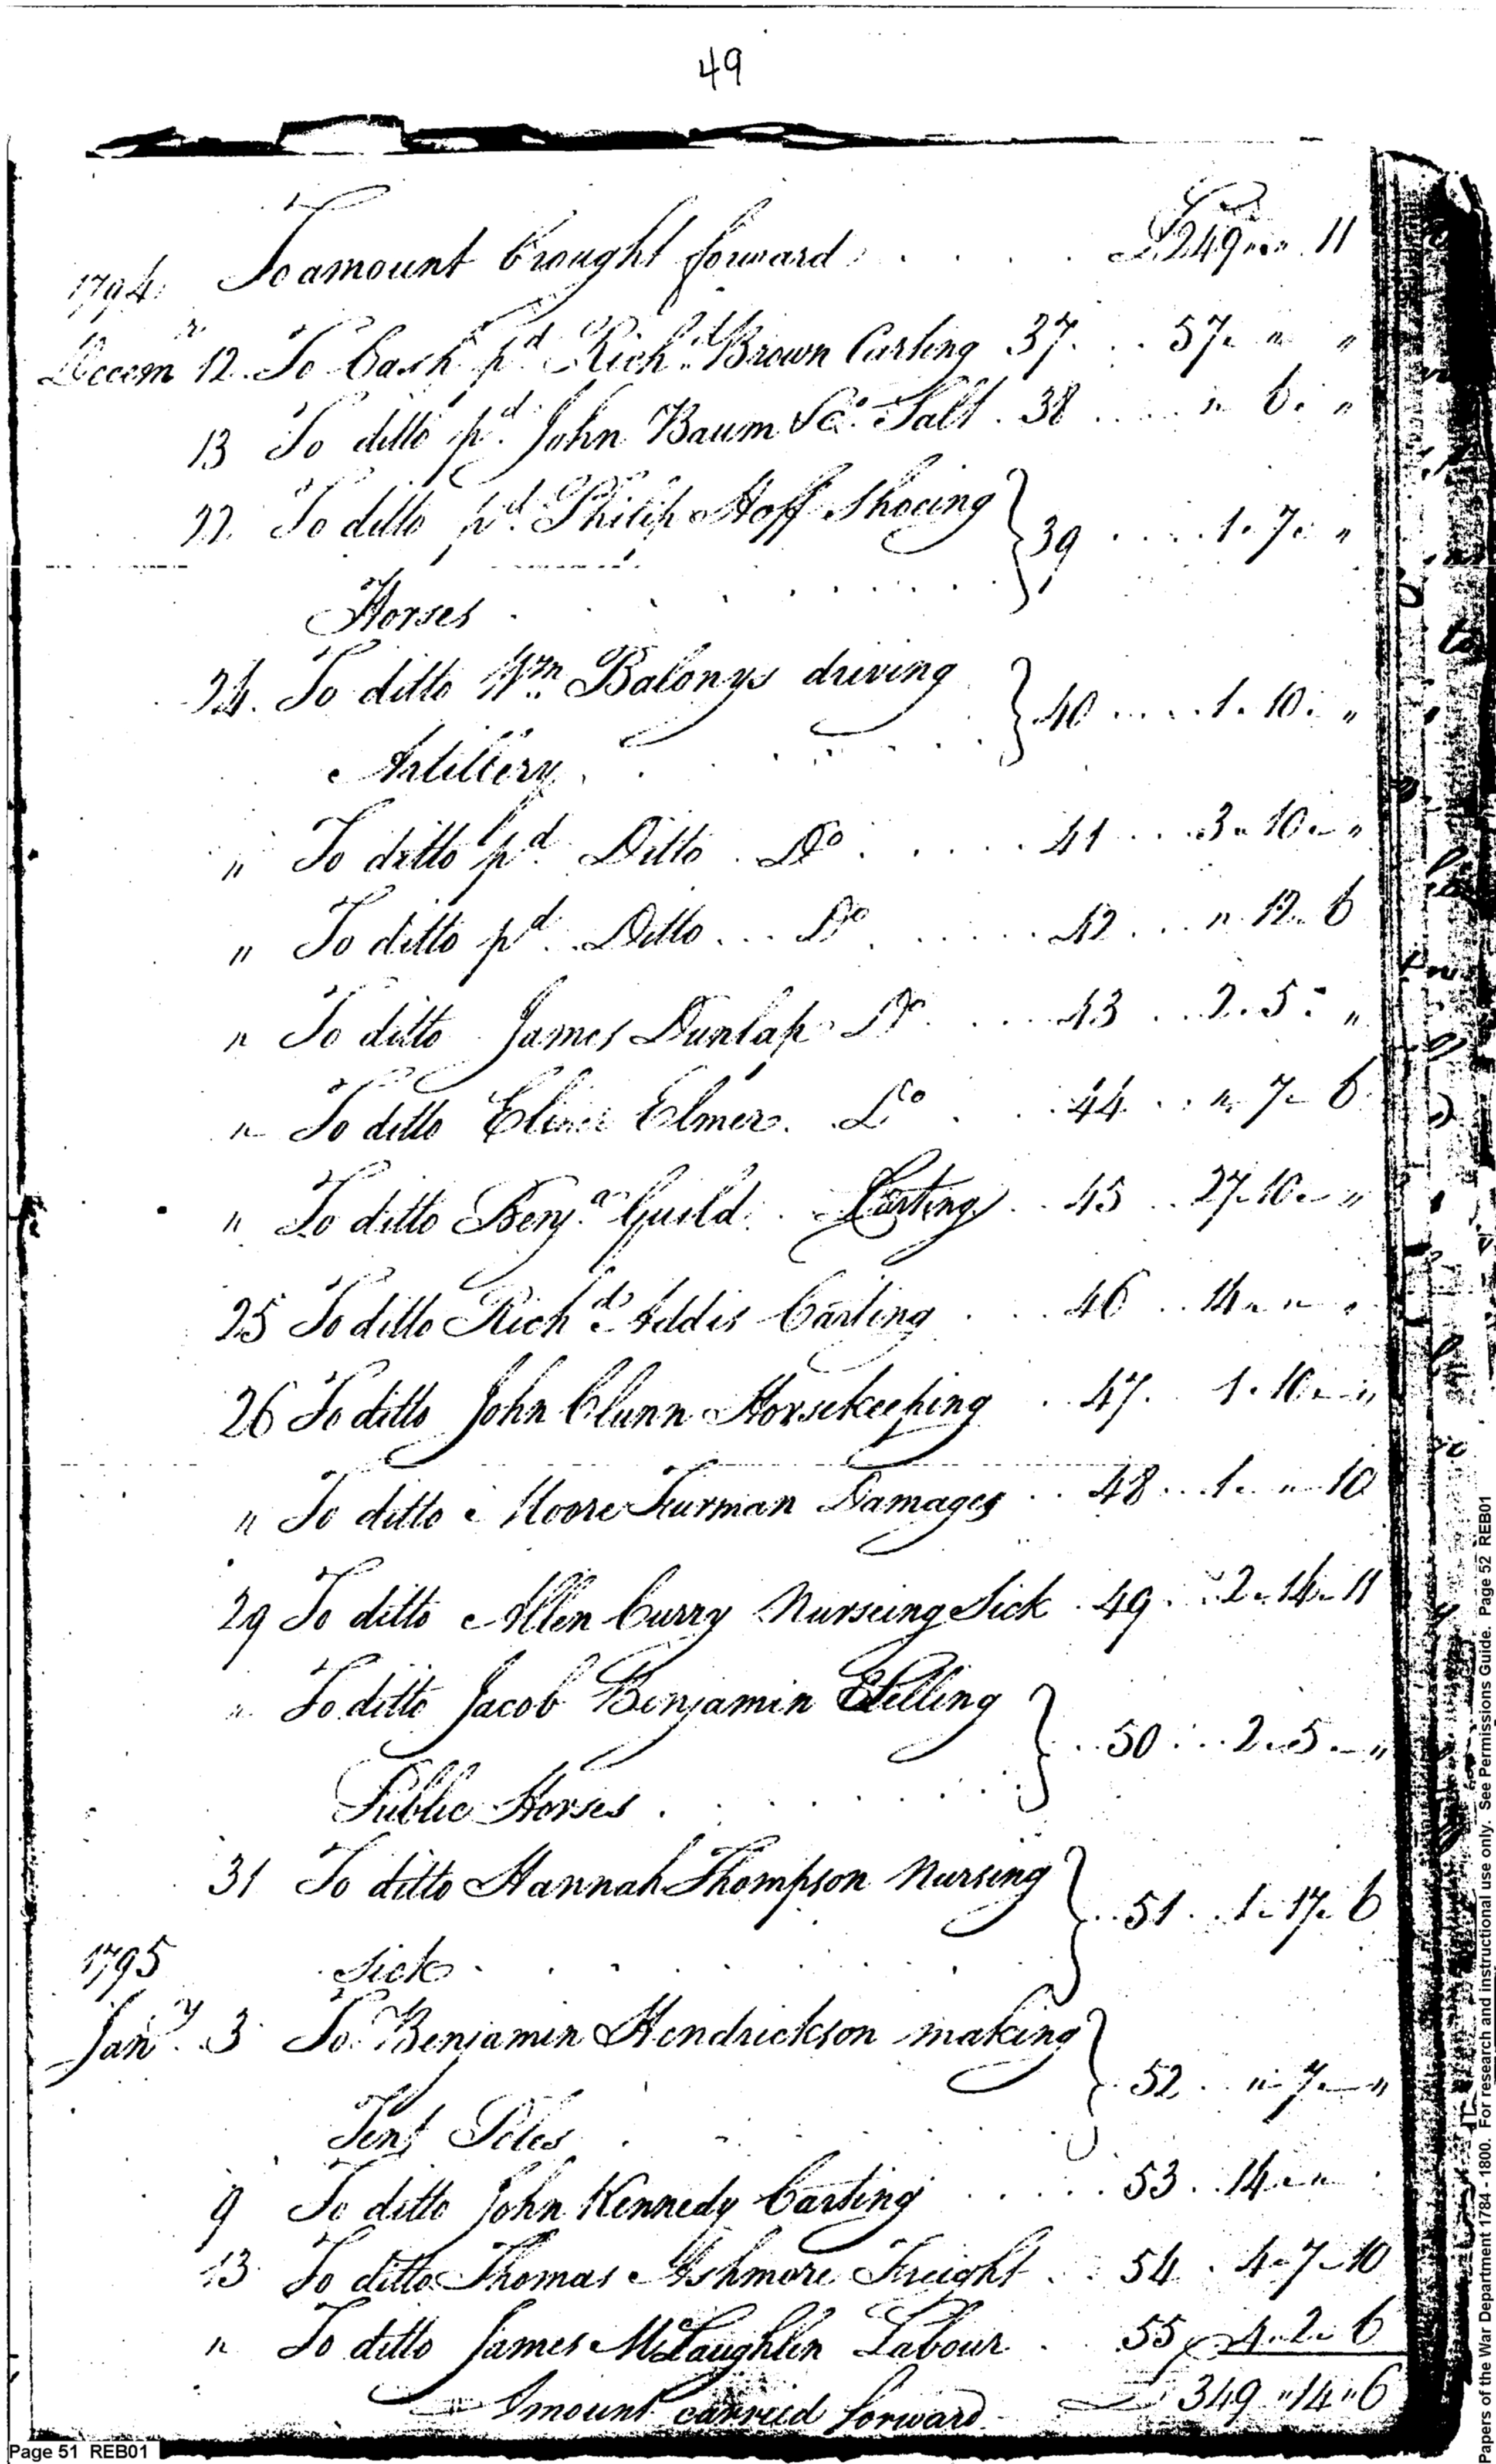 49
To amount brought forward . . . . £249 " " 11
1794
Decemr 12 To Cash pd Richd Brown Carting 37 . . 57 " "
13 To ditto pd John Baum &Co. Salt . 38 . . . . " 6 "
22 To ditto pd Philip Hoff Shoeing } 39 . . . . 1 . 7 "
Horses . . . . . . .
24 To ditto Wm Balonys driving } 40 . . . . 1 . 10 "
Artillery . . . . . .
" To ditto pd Ditto . Do . . . . . 41 . . . 3 " 10 "
" To ditto pd Ditto . . . Do . . . . . 42 . . . " 12 . 6
" To ditto James Dunlap Do . . . . 43 . . 2 . 5 "
" To ditto Elmer Do . . . 44 . . " 7 - 6
" To ditto Benja Guild . . Carting . . 45 . . 27 - 10 "
25 To ditto Richd Addis Carting . . . 46 . . 14 " "
26 To ditto John Clunn Horsekeeping . . 47 . 1 . 10 "
" To ditto Moore Furman Damages . . 48 . . 1 . " 10
29 To ditto Allen Curry Nurseing Sick . 49 . . 2 . 14 . 11
" To ditto Jacob Benjamin } . . 50 . . . 2 . 5 "
Public Horses . . . . . . .
31 To ditto Hannah Thompson Nursing } . . 51 . . 1 . 17 . 6
Sick . . . . . . . .
1795
Jany 3 To Benjamin Hendrickson making } . 52 . . " 7 "
Tent Poles . . . . . .
9 To ditto John Kennedy Carting . . . . . 53 . . 14 " "
13 To ditto Thomas Ashmore Freight . . 54 . 4 - 7 - 10
" To ditto James McLaughlin Labour . . 55 4 . 2 . 6
Amount carried forward £ 349 " 14 " 6
Page 51 REB01
Papers of the War Department 1784 - 1800. For research and instructional use only. See Permissions Guide. Page 52 REB01